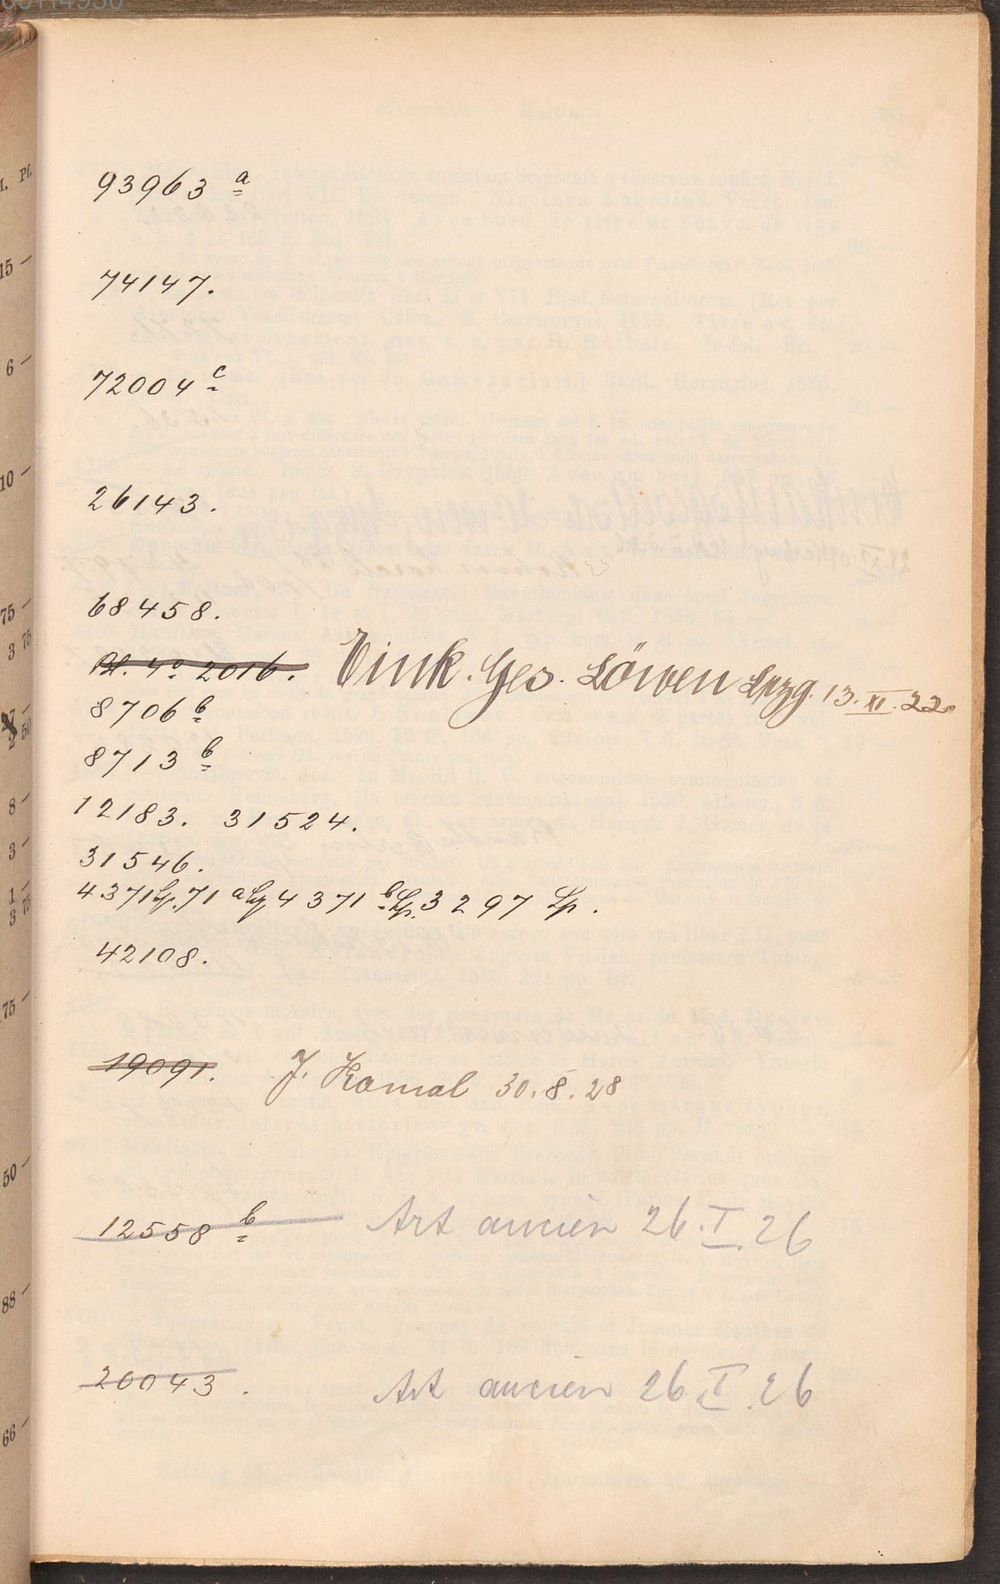 93963 a
74147.
72004 c
26143.
68458.
Pl. 4° 2016. Eink. Ges. Löwen Lpzg. 13. XI. 22.
8706 b
8713 b
12183. 31524.
31546.
4371 Lp. 71 a Lp 4371 b Lp. 3297 Lp.
42108.
19091. J. Kamal 30.8.28
12558 b Art ancien 26. I. 26
20043. Art ancien 26 I. 26
15 —
6 —
10 —
75
3 75
8 —
3 —
1 —
3 75
75 —
50
88 —
66 —